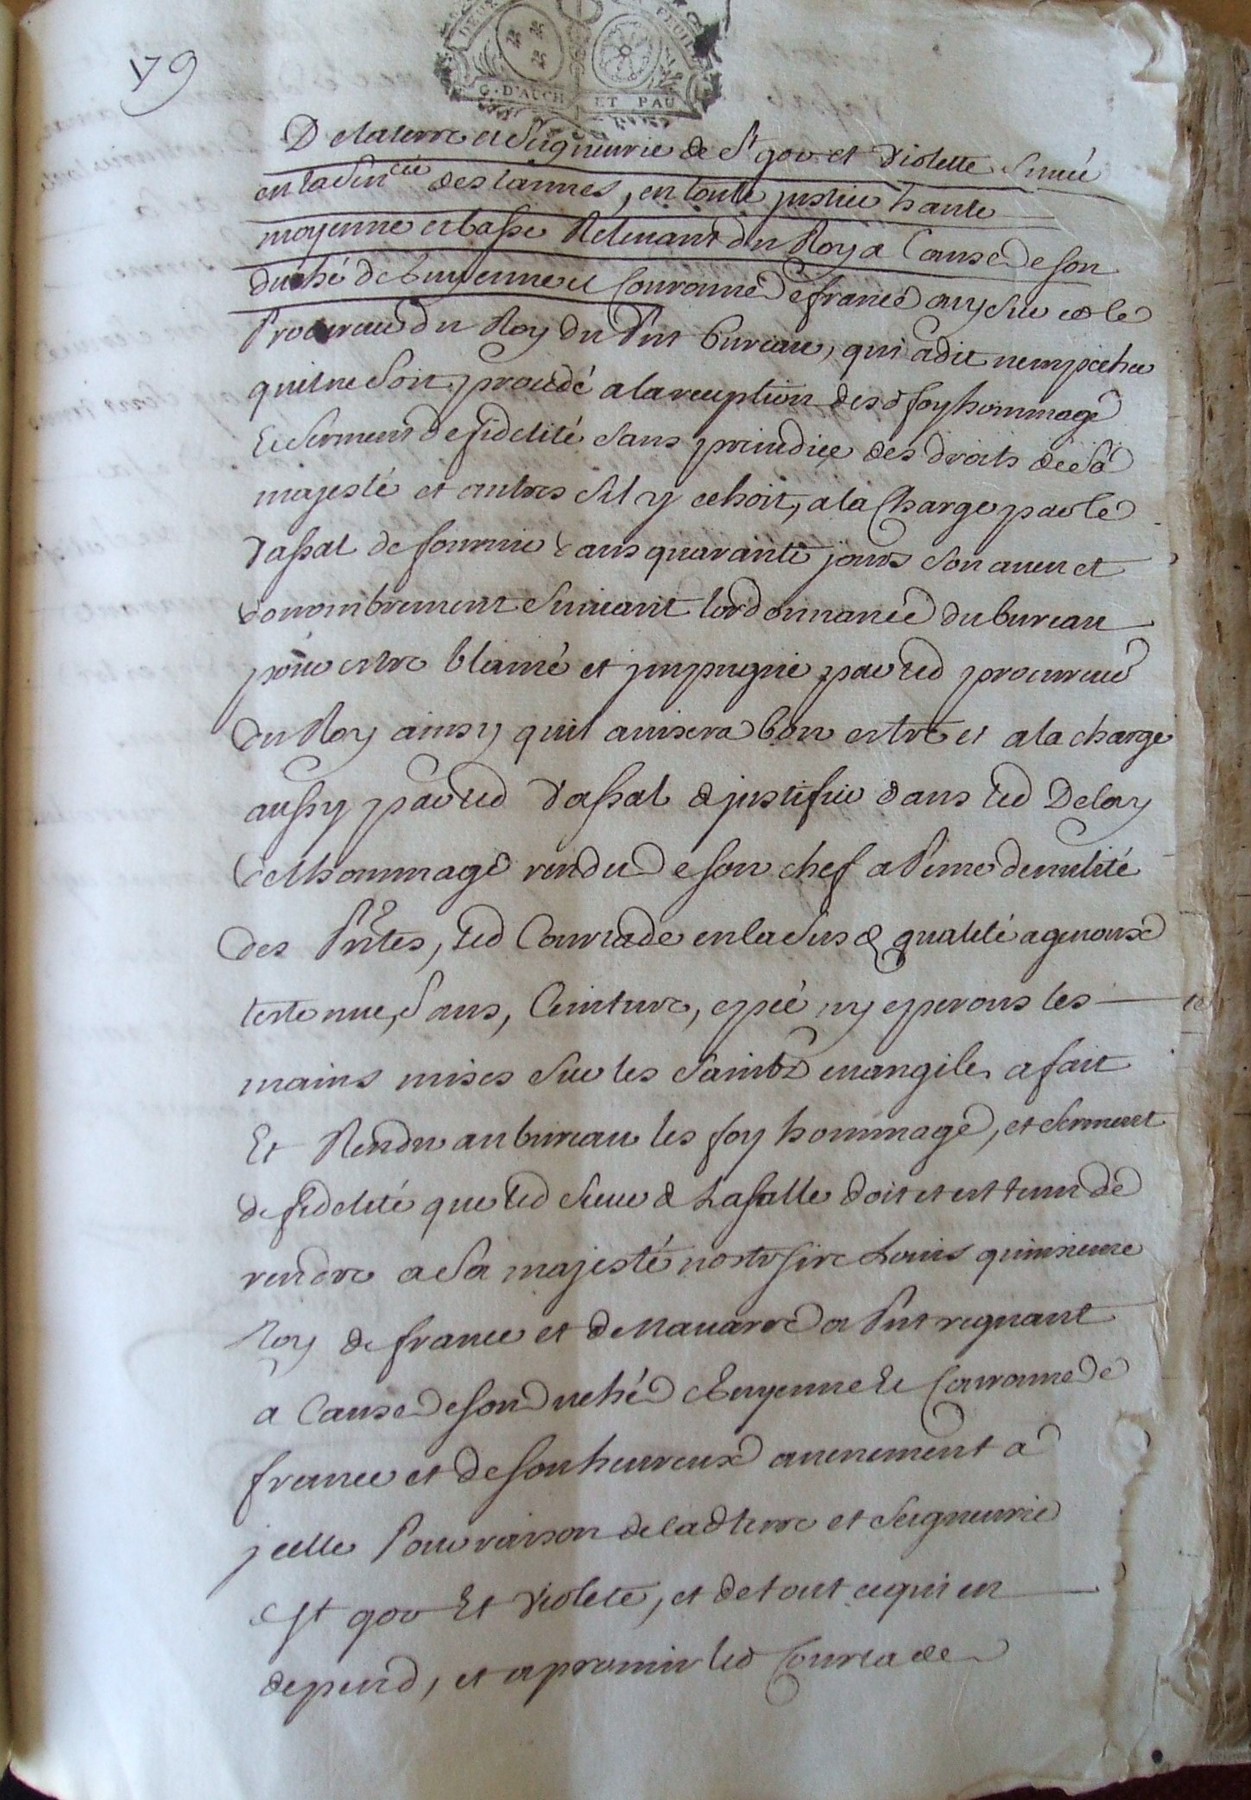 79
DEUX FEUIL
G. D'AUCH ET PAU
De la terre et Seigneurie de St gor et violette Scituée
en la Sencée des lannes, en toute justice haute
moyenne et basse Relevant du Roy a Cause de son
duché de Guyenne et Couronne de france ouy sur ce le
Procureur du Roy du Pnt bureau, qui a dit nempecher
quil ne soit procedé a la reception desd foy hommage
Et serment de fidelité sans prejudice des droits de Sa
majesté et autres sil y echoit, a la Charge par le
vassal de fournir dans quarante jours son aveu et
denombrement suivant lordonnance du bureau
pour estre blamé et jmpugné par led procureur
du Roy ainsy quil avisera bon estre et a la charge
aussy par led vassal de justifier dans led Delay
de lhommage rendu de son chef a Peine de nulité
des Pntes, led Courtade en la susd qualité a genoux
teste nue, sans, Ceinture, epée ny eperons les
mains mises sur les saints evangiles a fait
Et Rendu au bureau les foy hommage, et serment
de fidelité que led sieur de Lasalle doit et est tenu de
rendre a Sa majesté nostre sire Louis quinzieme
Roy de france et de Navarre a Pnt regnant
a Cause de son duché de Guyenne Et Couronne de
france et de son heureux avenement a
jcelle Pour raison de lad terre et Seigneurie
St gor Et violete, et de tout ce qui en
depend, et a promis led Courtade